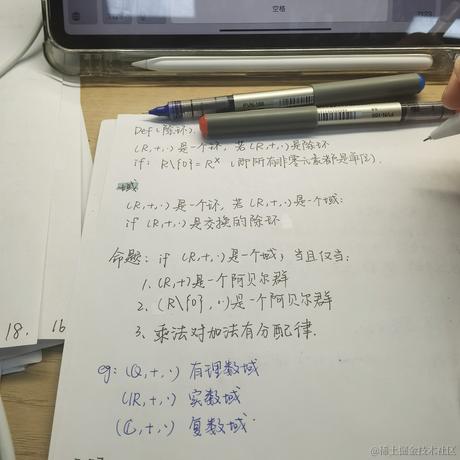 空格
Def (除环).
(R,+,·)是一个环,若(R,+,·)是除环
if: R\{0}=R^× (即所有非零元素都是单位).
域
(R,+,·)是一个环,若(R,+,·)是一个域:
if (R,+,·)是交换的除环
命题: if (R,+,·)是一个域; 当且仅当:
1. (R,+)是一个阿贝尔群
2. (R\{0},·)是一个阿贝尔群
3、乘法对加法有分配律.
18.
16
eg: (Q,+,·) 有理数域
(R,+,·) 实数域
(C,+,·) 复数域.
@稀土掘金技术社区